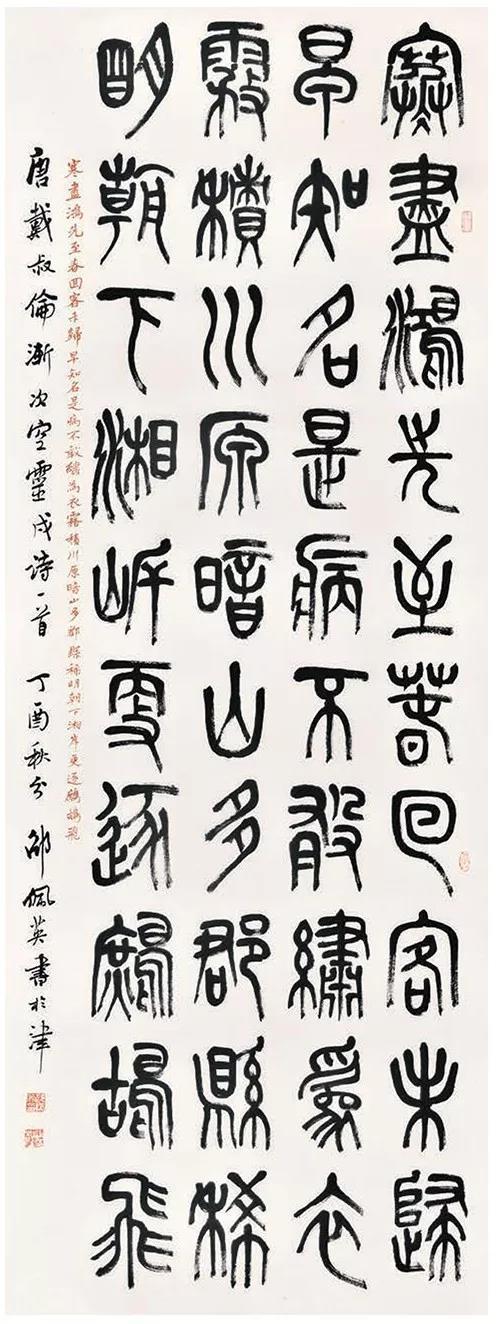 寒盡鴻先至春回客未歸
早知名是病不敢繡為衣
霧積川原暗山多郡縣稀
明朝下湘岸更逐鷓鴣飛
寒盡鴻先至春回客未歸早知名是病不敢繡為衣霧積川原暗山多郡縣稀明朝下湘岸更逐鷓鴣飛
唐戴叔倫漸次空靈戍詩一首 丁酉秋分 邵佩英書於津